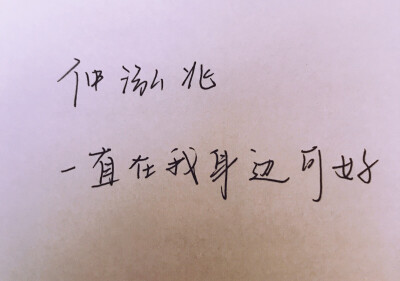 仲泓兆
一直在我身边可好